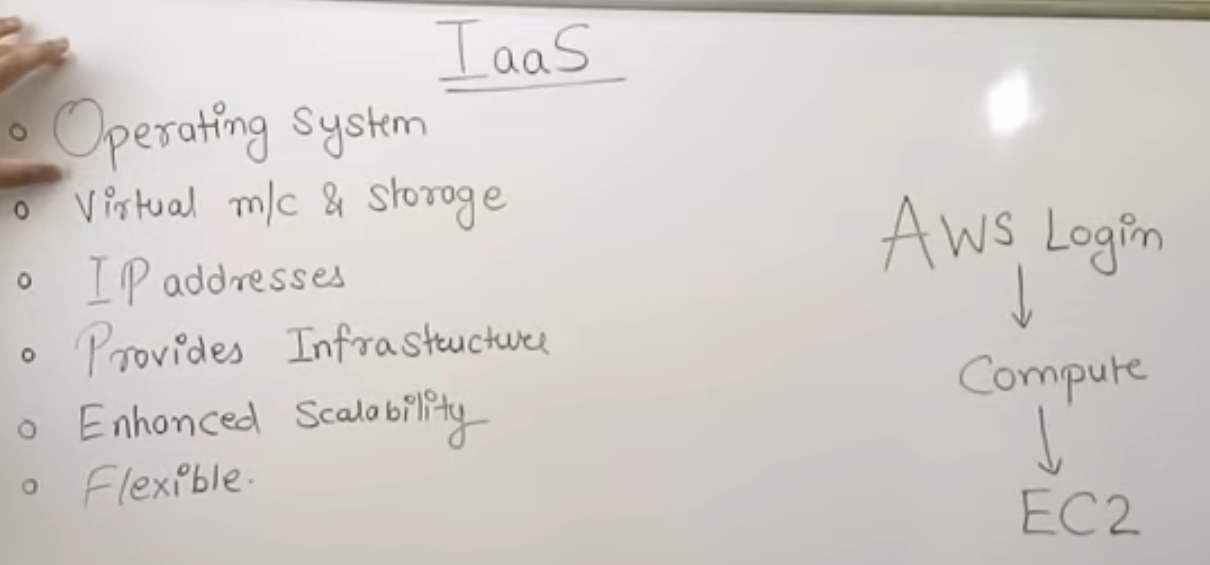 IaaS
Operating System
Virtual m/c & Storage
IP addresses
Provides Infrastructure
Enhanced Scalability
Flexible.
AWS Login
↓
Compute
↓
EC2